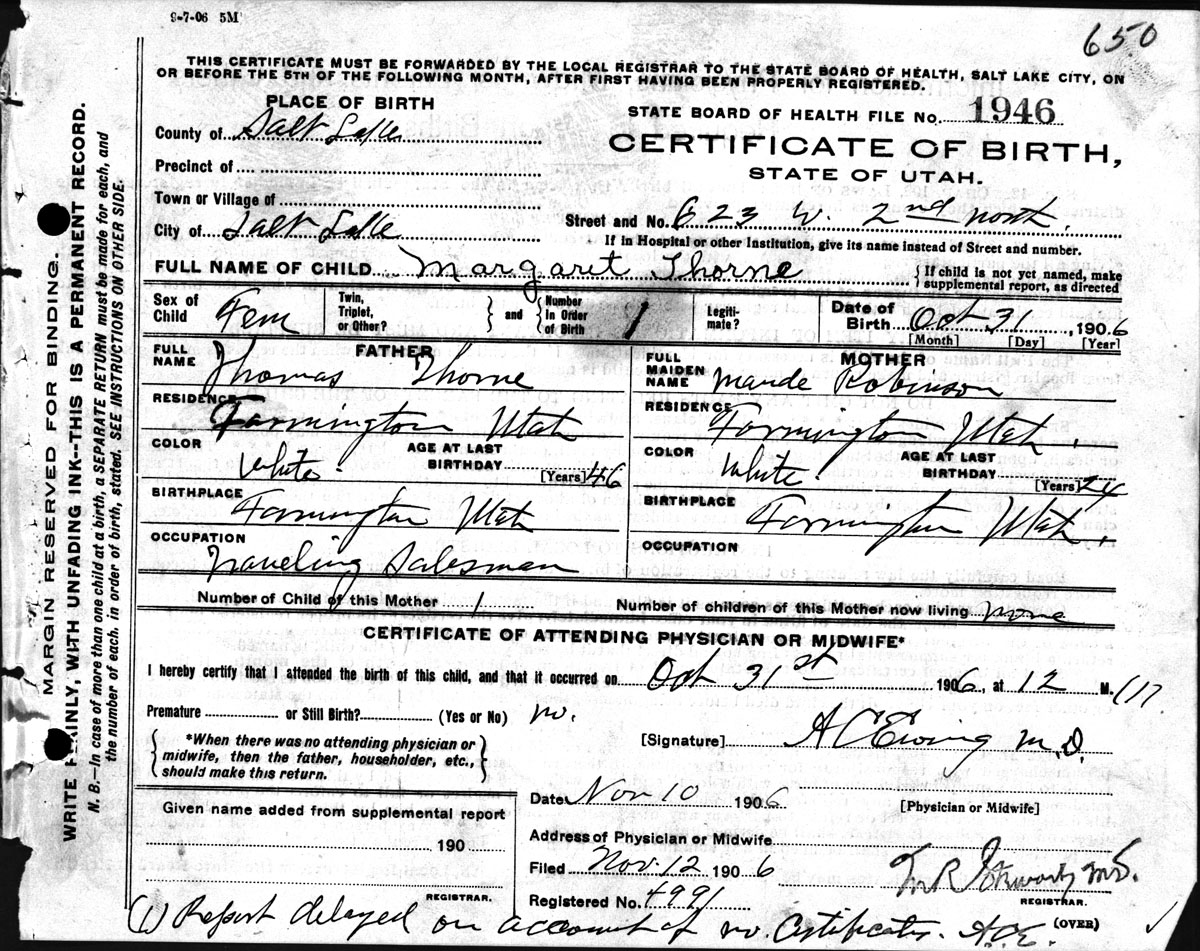 9-7-06 5M
650
THIS CERTIFICATE MUST BE FORWARDED BY THE LOCAL REGISTRAR TO THE STATE BOARD OF HEALTH, SALT LAKE CITY, ON
OR BEFORE THE 5TH OF THE FOLLOWING MONTH, AFTER FIRST HAVING BEEN PROPERLY REGISTERED.
MARGIN RESERVED FOR BINDING.
WRITE PLAINLY, WITH UNFADING INK--THIS IS A PERMANENT RECORD.
N. B.—In case of more than one child at a birth, a SEPARATE RETURN must be made for each, and
the number of each, in order of birth, stated. SEE INSTRUCTIONS ON OTHER SIDE.
PLACE OF BIRTH
County of Salt Lake
Precinct of
Town or Village of
City of Salt Lake
STATE BOARD OF HEALTH FILE No. 1946
CERTIFICATE OF BIRTH,
STATE OF UTAH.
Street and No. 623 W. 2nd North.
If in Hospital or other Institution, give its name instead of Street and number.
FULL NAME OF CHILD Margaret Thorne
{ If child is not yet named, make
supplemental report, as directed
Sex of Child Fem
Twin, Triplet, or Other? } and { Number in Order of Birth 1
Legiti-mate?
Date of Birth Oct 31, 1906
[Month] [Day] [Year]
FATHER
FULL NAME Thomas Thorne
RESIDENCE Farmington Utah
COLOR White.
AGE AT LAST BIRTHDAY 46 [Years]
BIRTHPLACE Farmington Utah
OCCUPATION Traveling Salesman
MOTHER
FULL MAIDEN NAME Maude Robinson
RESIDENCE Farmington Utah.
COLOR White.
AGE AT LAST BIRTHDAY 24 [Years]
BIRTHPLACE Farmington Utah.
OCCUPATION
Number of Child of this Mother 1 Number of children of this Mother now living none
CERTIFICATE OF ATTENDING PHYSICIAN OR MIDWIFE*
I hereby certify that I attended the birth of this child, and that it occurred on Oct 31st 1906, at 12 M. (1)
Premature or Still Birth? (Yes or No) no.
{ *When there was no attending physician or
midwife, then the father, householder, etc.,
should make this return. }
[Signature] A C Ewing M.D.
Date Nov 10 1906
[Physician or Midwife]
Given name added from supplemental report
190
REGISTRAR.
Address of Physician or Midwife
Filed Nov. 12 1906
Registered No. 4991
REGISTRAR.
(OVER)
(1) Report delayed on account of no. Certificates. A.C.E.